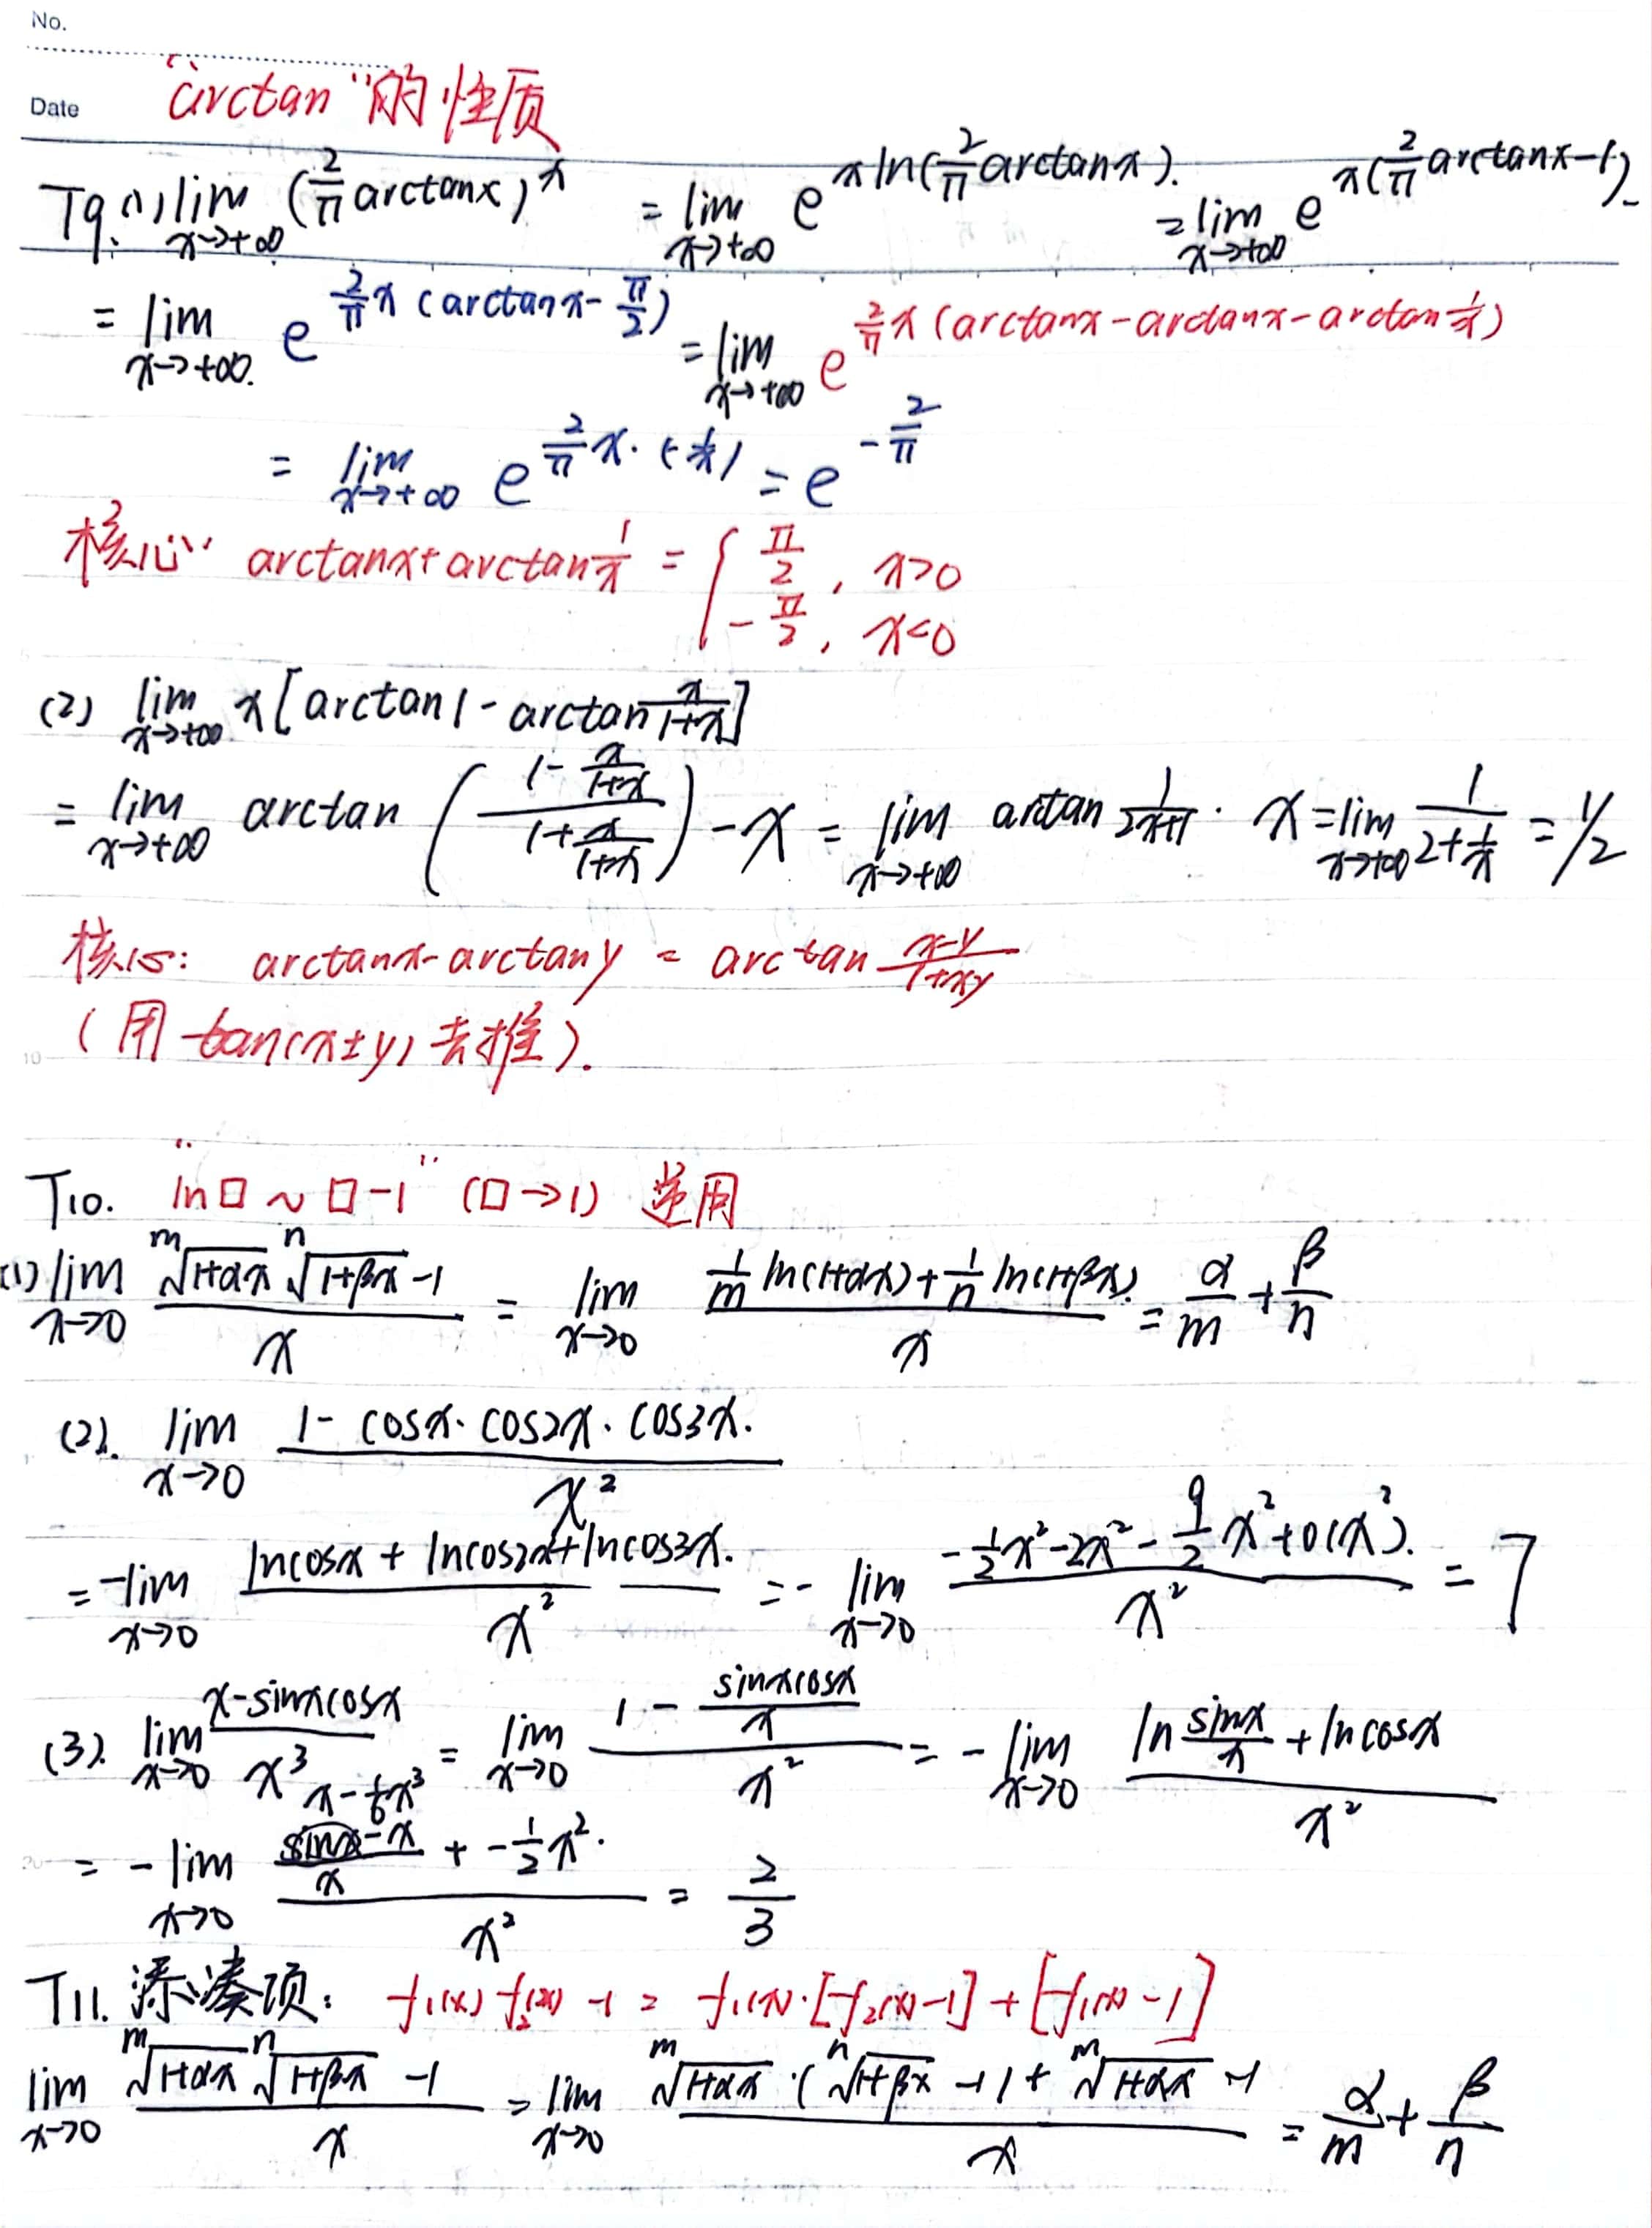 No.
Date
"arctan"的性质
T9. (1) lim_{x→+∞} (2/π arctanx)^x = lim_{x→+∞} e^{x ln(2/π arctanx)}. = lim_{x→+∞} e^{x(2/π arctanx-1)}.
= lim_{x→+∞.} e^{2/π x (arctanx-π/2)} = lim_{x→+∞} e^{2/π x (arctanx-arctanx-arctan 1/x)}
= lim_{x→+∞} e^{2/π x·(-1/x)} = e^{-2/π}
核心: arctanx+arctan 1/x = { π/2, x>0
-π/2, x<0
(2) lim_{x→+∞} x[arctan1-arctan x/(1+x)]
= lim_{x→+∞} arctan ((1-x/(1+x))/(1+x/(1+x))) -x = lim_{x→+∞} arctan 1/(2x+1) · x = lim_{x→+∞} 1/(2+1/x) = 1/2
核心: arctanx-arctany = arctan (x-y)/(1+xy)
(用 tan(x±y) 去推).
T10. "ln□ ~ □-1" (□→1) 逆用
(1) lim_{x→0} (ᵐ√(1+αx) ⁿ√(1+βx) -1)/x = lim_{x→0} (1/m ln(1+αx)+1/n ln(1+βx))/x = α/m + β/n
(2). lim_{x→0} (1-cosx·cos2x·cos3x.)/x²
= -lim_{x→0} (lncosx + lncos2x+lncos3x.)/x² = - lim_{x→0} (-1/2x²-2x²-9/2x²+o(x²).)/x² = 7
(3). lim_{x→0} (x-sinxcosx)/x³ = lim_{x→0} (1 - sinxcosx/x)/x² = - lim_{x→0} (ln sinx/x + lncosx)/x²
x-1/6x³
= - lim_{x→0} ((sinx-x)/x + -1/2x².)/x² = 2/3
T11. 添凑项: f₁(x) f₂(x) -1 = f₁(x)·[f₂(x)-1] + [f₁(x)-1]
lim_{x→0} (ᵐ√(1+αx) ⁿ√(1+βx) -1)/x = lim_{x→0} (ᵐ√(1+αx)·(ⁿ√(1+βx) -1) + ᵐ√(1+αx) -1)/x = α/m + β/n